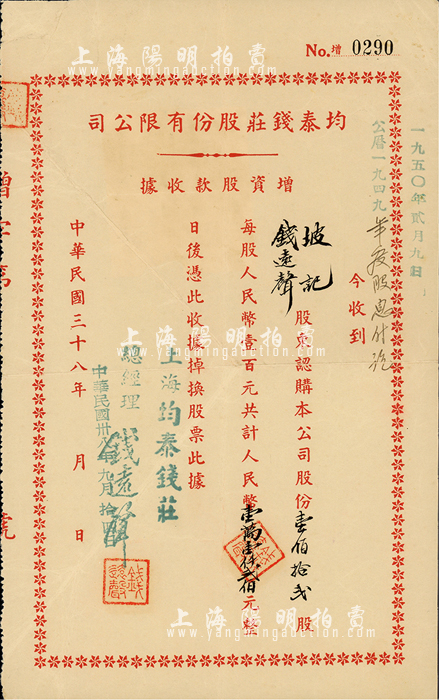 上海陽明拍賣
www.yangmingauction.com
No. 增 0290
均泰錢莊股份有限公司
增資股款收據
一九五〇年貳月九日
公曆一九四九年度股息付訖
今收到
坡記
錢遠聲
股東認購本公司股份壹佰拾弍股
每股人民幣壹百元共計人民幣壹萬壹仟貳佰元整
日後憑此收據掉換股票此據
上海均泰錢莊
總經理 錢遠聲
中華民國卅八年九月拾
中華民國三十八年 月 日
增字第 號
上海陽明拍賣
www.yangmingauction.com
上海陽明拍賣
yangmingauction.com